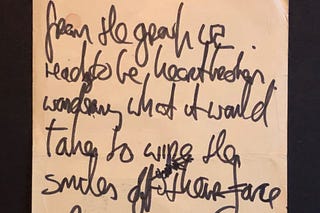 from the
ready to be heartbroken
wondering what it would
take to wipe the
smiles off their face